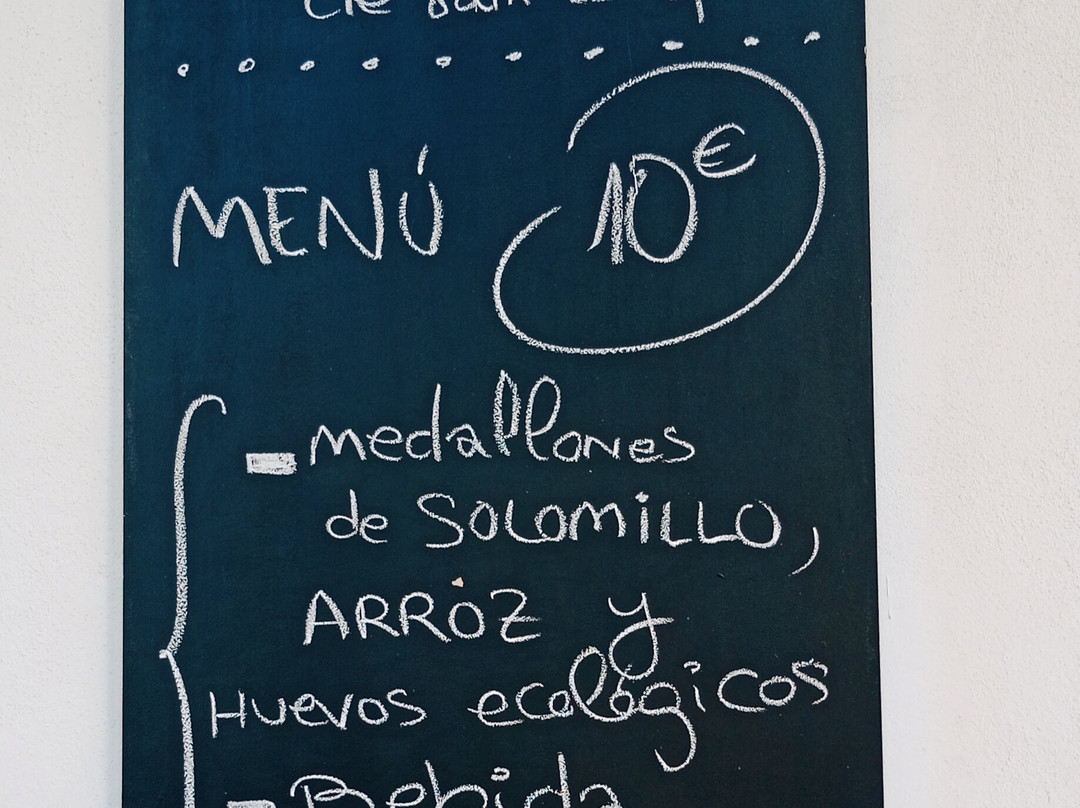 MENÚ 10€
- medallones
de SOLOMILLO,
ARROZ y
Huevos ecológicos
- Bebida